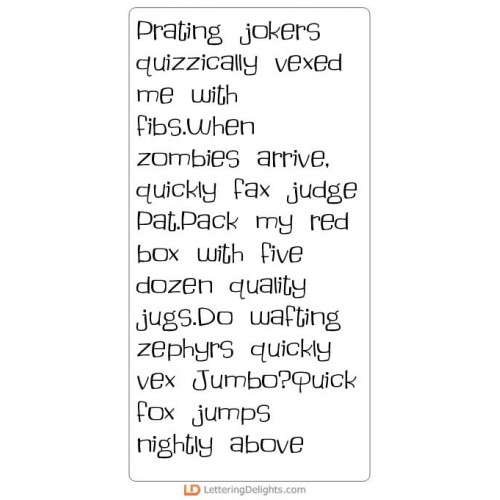 Prating jokers
quizzically vexed
me with
fibs.When
zombies arrive,
quickly fax judge
Pat.Pack my red
box with five
dozen quality
jugs.Do wafting
zephyrs quickly
vex Jumbo?Quick
fox jumps
nightly above
LD LetteringDelights.com